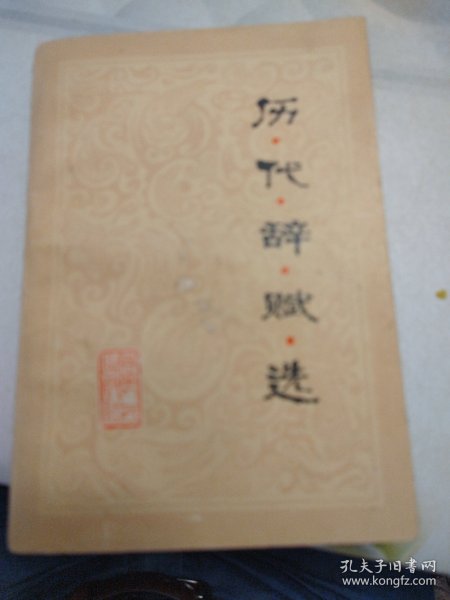 历·代·辞·赋·选
孔夫子旧书网
www.kongfz.com